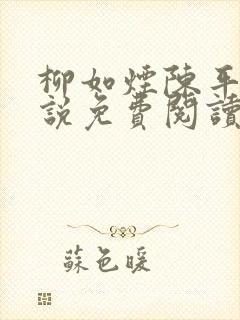 柳如煙陳平
說免費閱讀
蘇色暖